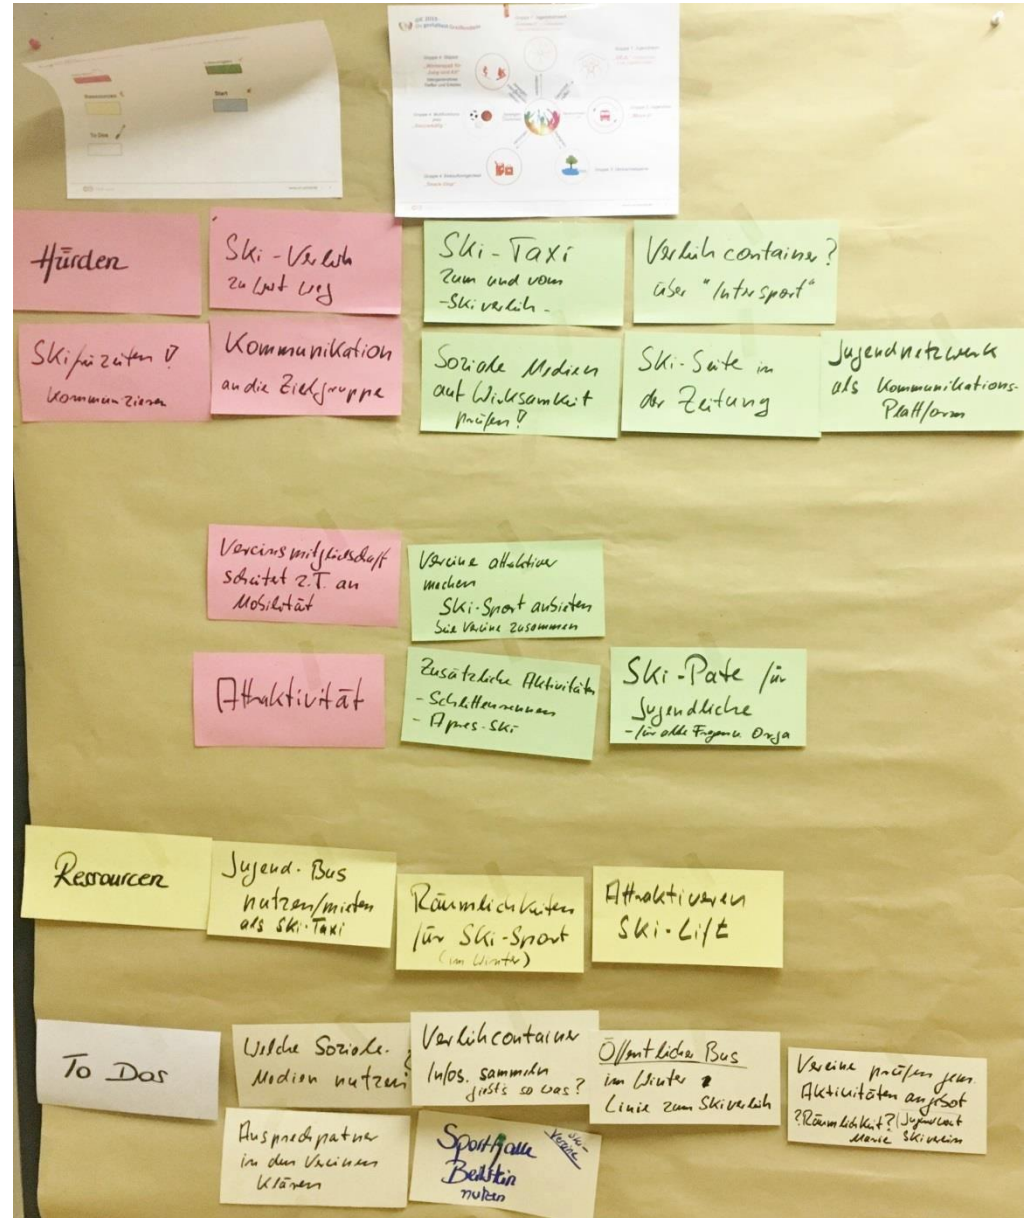 Ressourcen
Start
To Dos
Hürden
Ski-Verleih
zu weit weg
Ski-Taxi
zum und vom
-Skiverleih-
Verleihcontainer?
über "Intersport"
kommunizieren
Kommunikation
an die Zielgruppe
Soziale Medien
auf Wirksamkeit
prüfen!
Ski-Seite in
der Zeitung
Jugendnetzwerk
als Kommunikations-
Plattform
Vereinsmitgliedschaft
scheitet z.T. an
Mobilität
Vereine attraktiver
machen
Ski-Sport anbieten
Vereine zusammen
Attraktivität
Zusätzliche Aktivitäten
- Schlittenrennen
- Apres-Ski
Ski-Pate für
Jugendliche
- für alle Fragen Orga
Ressourcen
Jugend-Bus
nutzen/mieten
als Ski-Taxi
Räumlichkeiten
für Ski-Sport
(im Winter)
Attraktiveren
Ski-Lift
To Dos
Welche Soziale-
Medien nutzen?
Verleihcontainer
Infos. sammeln
gibt's so was?
Öffentlicher Bus
im Winter
Linie zum Skiverleih
Vereine prüfen gem.
Aktivitäten angebot
?Räumlichkeit? / Jugendwart
Skiverein
Ansprechpatner
in den Vereinen
klären
Sporthalle
Beilstein
nutzen
Ski-
Vereine